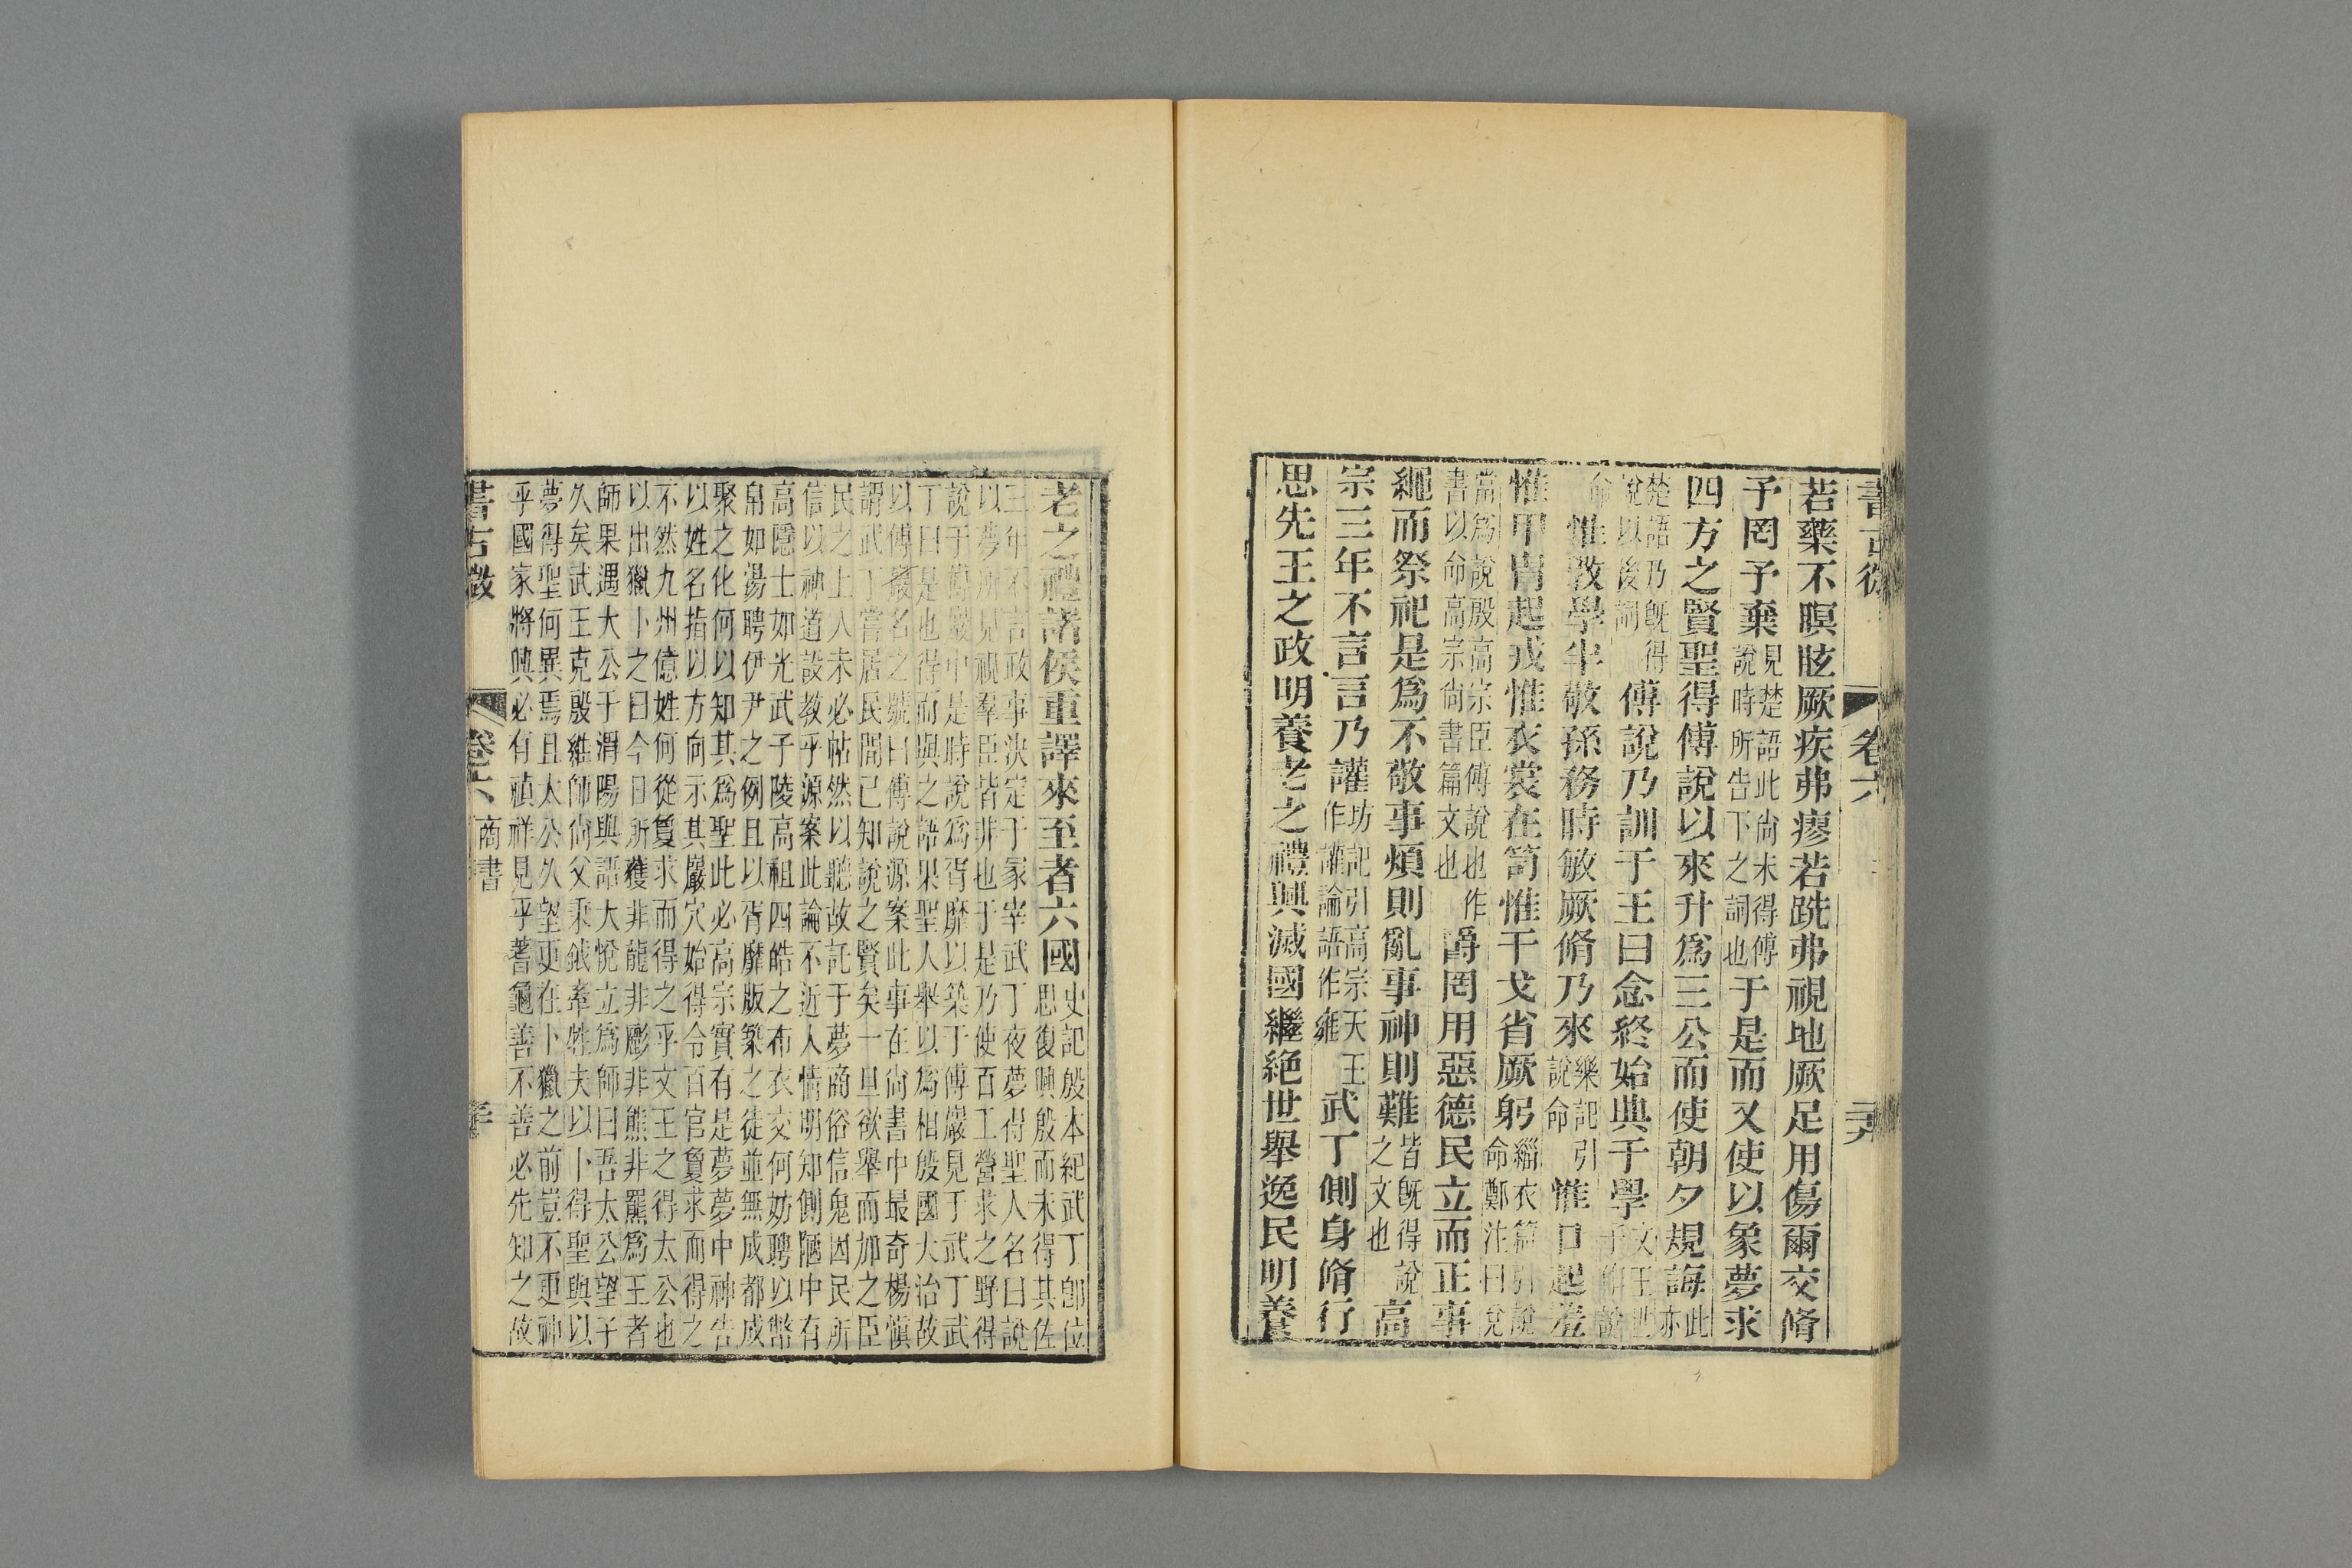 書古微 卷六
若藥不瞑眩厥疾弗瘳若跣弗視地厥足用傷爾交脩
予罔予棄見楚語此尚未得傅說時所告下之詞也于是而又使以象夢求
四方之賢聖得傅說以來升爲三公而使朝夕規誨此亦
楚語乃旣得說以後詞傅說乃訓于王曰念終始典于學文王世子引說
命惟斆學半敬孫務時敏厥脩乃來樂記引說命惟口起羞
惟甲冑起戎惟衣裳在笥惟干戈省厥躬緇衣篇引說命鄭注曰兌
當爲說殷高宗臣傅說也作書以命高宗尚書篇文也爵罔用惡德民立而正事
繩而祭祀是爲不敬事煩則亂事神則難皆旣得說之文也高
宗三年不言言乃讙坊記引高宗天王作讙論語作雍武丁側身脩行
思先王之政明養老之禮興滅國繼絕世舉逸民明養
老之禮諸侯重譯來至者六國史記殷本紀武丁卽位思復興殷而未得其佐
三年不言政事決定于冢宰武丁夜夢得聖人名曰說
以夢所見視羣臣皆非也于是乃使百工營求之野得
說于傅巖中是時說爲胥靡以築于傅巖見于武丁武
丁曰是也得而與之語果聖人舉以爲相殷國大治故
以傅巖名之號曰傅說源案此事在尚書中最奇楊愼
謂武丁嘗居民閒已知說之賢矣一旦欲舉而加之臣
民之上人未必帖然以聽故託于夢商俗信鬼因民所
信以神道設教乎源案此論不近人情明知側陋中有
高隱士如光武子陵高祖四皓之布衣交何妨聘以幣
帛如湯聘伊尹之例且以胥靡版築之徒並無成都成
聚之化何以知其爲聖此必高宗實有是夢夢中神告
以姓名指以方向示其巖穴始得令百官敻求而得之
不然九州億姓何從敻求而得之乎文王之得太公也
以出獵卜之曰今日所獲非龍非彪非熊非羆爲王者
師果遇大公于渭陽與語大悅立爲師曰吾太公望子
久矣武王克殷維師尚父秉鉞牽牲夫以卜得聖與以
夢得聖何異焉且太公久望更在卜獵之前豈不更神
乎國家將興必有禎祥見乎蓍龜善不善必先知之故
書古微 卷六 商書